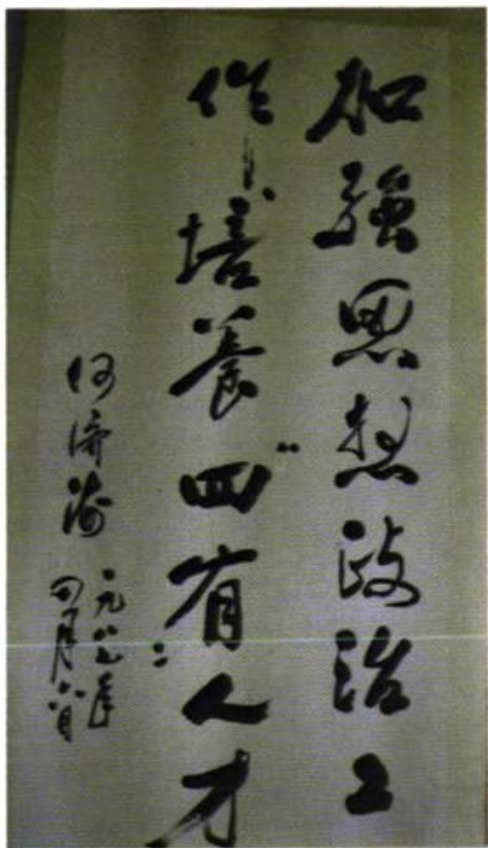 加強思想政治工
作培养“四有”人才
何济海
一九八七年
四月六日